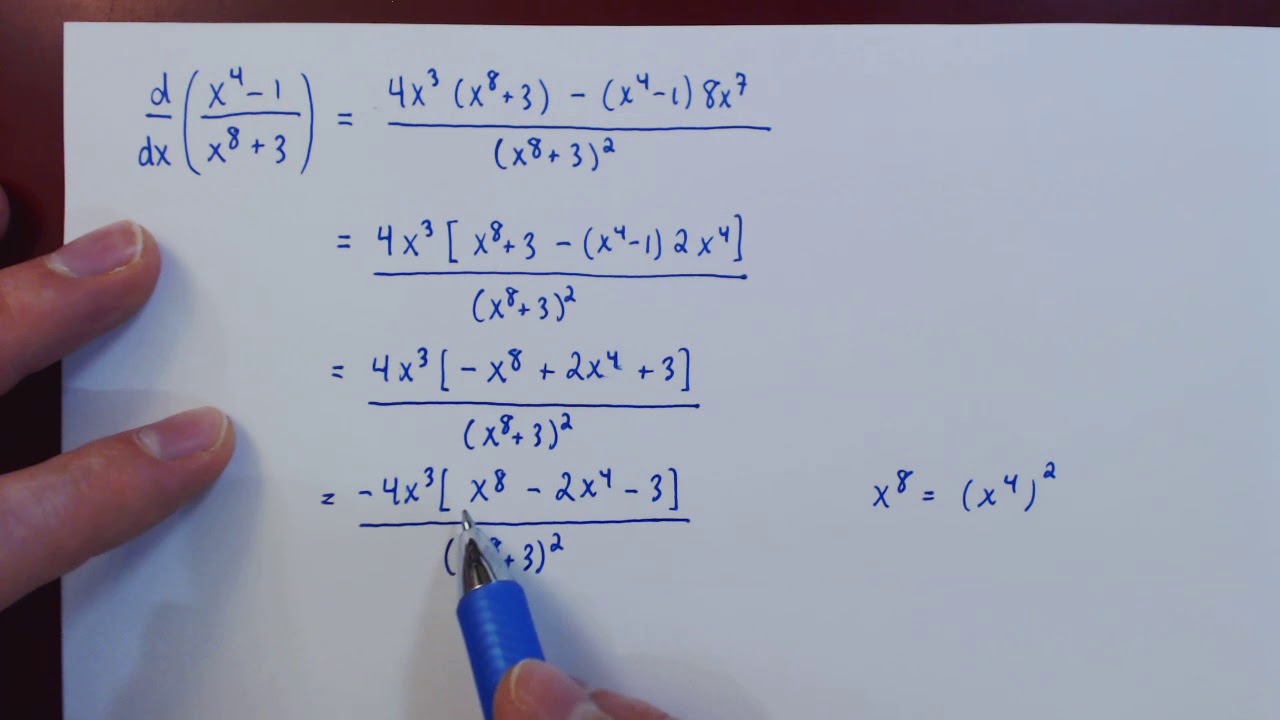 d/dx ((x⁴ - 1)/(x⁸ + 3)) = (4x³ (x⁸ + 3) - (x⁴ - 1) 8x⁷)/(x⁸ + 3)²
= 4x³ [x⁸ + 3 - (x⁴ - 1) 2x⁴]/(x⁸ + 3)²
= 4x³ [- x⁸ + 2x⁴ + 3]/(x⁸ + 3)²
= -4x³ [x⁸ - 2x⁴ - 3]/( ⁸ + 3)²
x⁸ = (x⁴)²